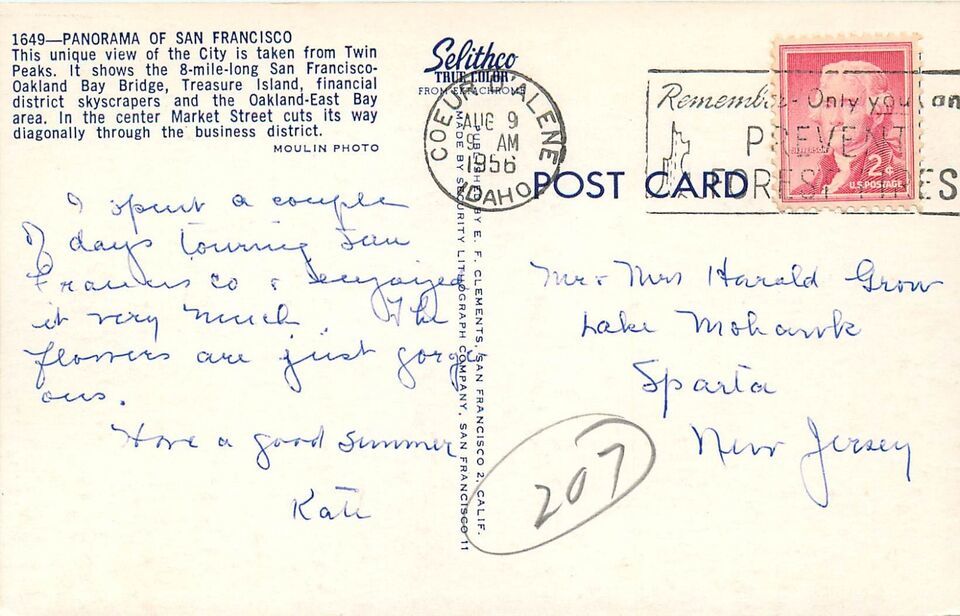 1649—PANORAMA OF SAN FRANCISCO
This unique view of the City is taken from Twin
Peaks. It shows the 8-mile-long San Francisco-
Oakland Bay Bridge, Treasure Island, financial
district skyscrapers and the Oakland-East Bay
area. In the center Market Street cuts its way
diagonally through the business district.
MOULIN PHOTO
I spent a couple
of days touring San
Francisco & enjoyed
it very much. The
flowers are just gorge
ous.
Have a good summer
Kate
Selithco
TRUE COLOR
FROM EKTACHROME
PUBLISHED BY E. F. CLEMENTS, SAN FRANCISCO 2, CALIF.
MADE BY SECURITY LITHOGRAPH COMPANY, SAN FRANCISCO 11
COEUR D'ALENE
AUG 9
9 AM
1956
IDAHO
Remember - Only you can
PREVENT
FOREST FIRES
2¢
U.S. POSTAGE
POST CARD
Mr & Mrs Harald Grow
Lake Mohawk
Sparta
New Jersey
207